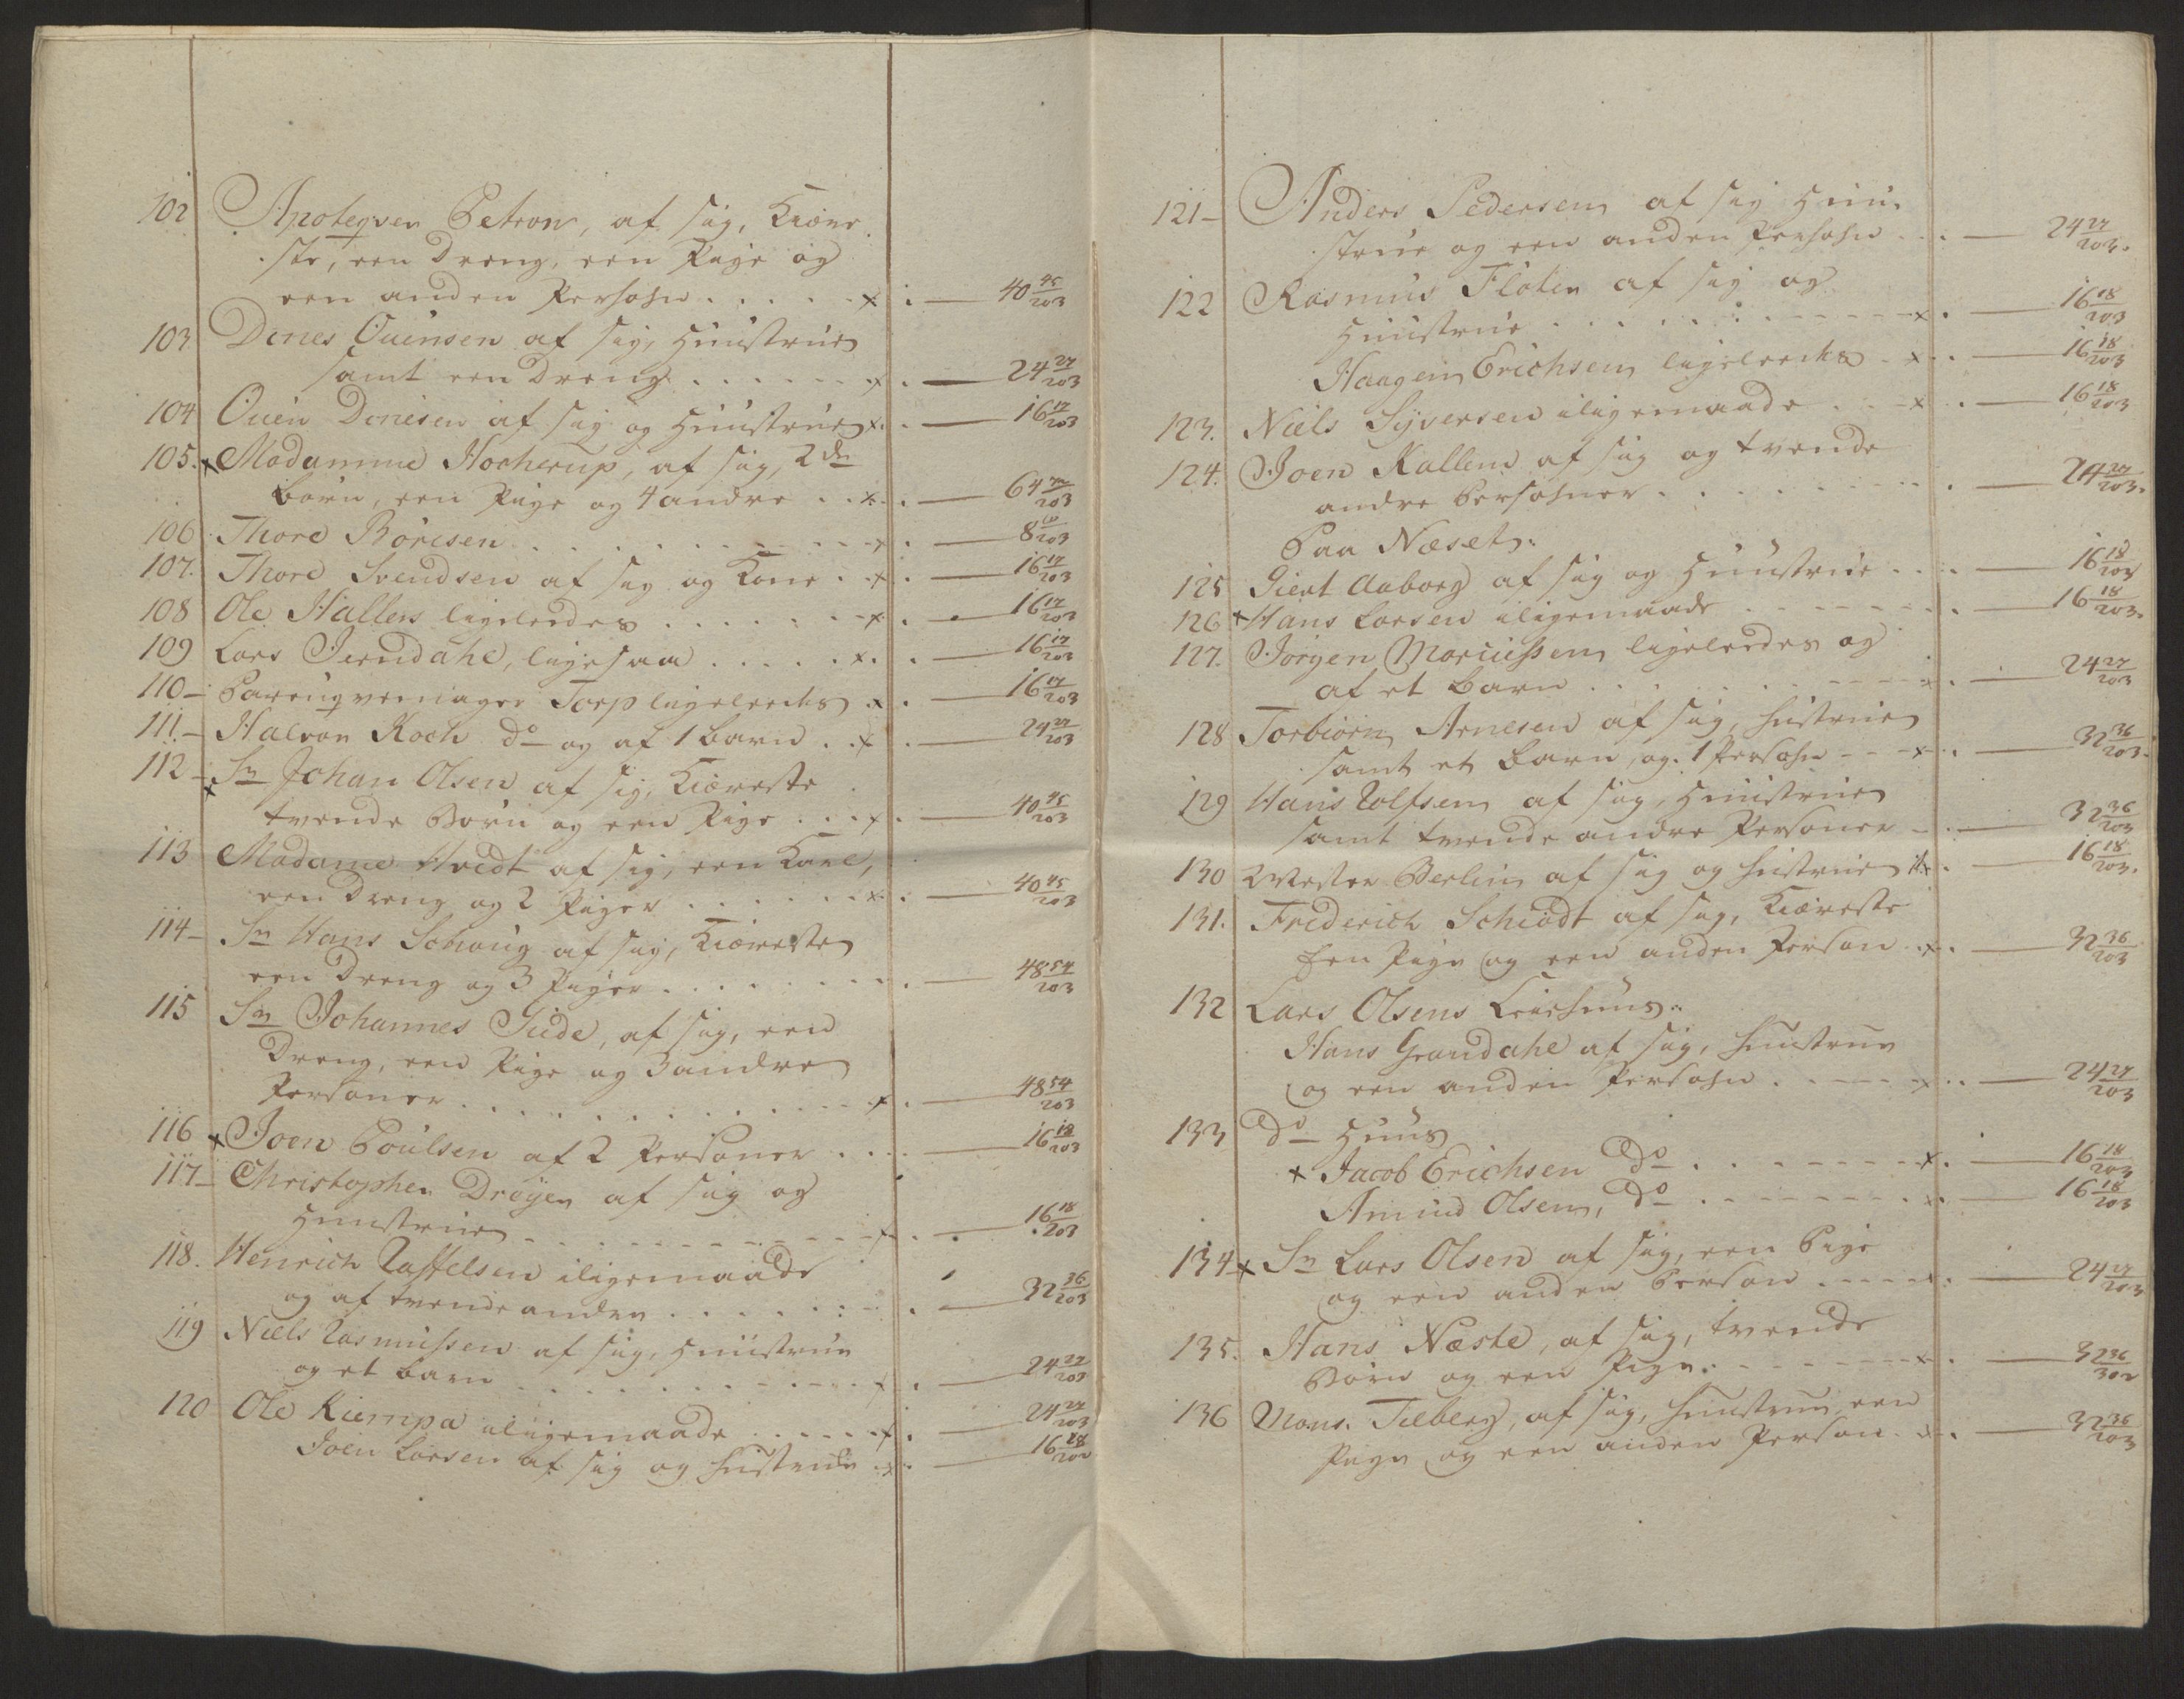 102 Apoteqven Petron, af sig, Kiære
ste, een Dreng, een Pige og
een anden Persohn . . . . . x . — 40 45/203
103. Denes Ouensen af sig, Huustrue
samt een Dreng . . . . . . x . — 24 27/203
104 Ouen Denesen af sig og Huustrue x. . — 16 17/203
105. x Madamme Hocherup, af sig, 2de
børn, een Pige og 4 andre . . x . — 64 /203
106 Thore Böresen . . . . . . x . — 8 /203
107. Thore Svendsen af sig og Kone . x . — 16 17/203
108 Ole Hallers ligeledes . . . . . . x . — 16 17/203
109 Lars Jerndahl, ligesaa . . . . . x. . — 16 17/203
110 — Parruqvemager Torp ligeleedes . x . — 16 17/203
111. — Halvor Koch do og af 1 barn . . x . — 24 27/203
112 — x Sr Johan Olsen af sig, Kiæreste
tvende Börn og een Pige . . . x . — 40 45/203
113 Madame Hvedt af sig, een Karl,
een Dreng og 2 Piger . . . . . . x . — 40 45/203
114 — Sr Hans Schoug af sig, Kiæreste
een Dreng og 3 Piger . . . . . . . . — 48 54/203
115 Sr Johannes Gude, af sig, een
Dreng, een Pige og 3 andre
Personer . . . . . . . . . x . — 48 54/203
116 x Joen Poulsen af 2 Personer . . . — 16 18/203
117 — Christopher Dreyer af sig og
Huustrue . . . . . . x . . — 16 18/203
118. Henrich Raffelsen iligemaade
og af tvende andre . . . . . . . . — 32 36/203
119 Niels Rasmussen af sig, Huustrue
og et barn . . . . . . . x . — 24 27/203
120 Ole Kiempa iligemaade . . . . . x . — 24 27/203
Joen Larsen af sig og Hustrue x . — 16 18/203
121 — Anders Pedersen af sig Huu-
strue og een anden Persohn . . . — 24 27/203.
122 Rasmus Floten af sig og
Huustrue . . . . . . . . x . — 16 18/203
Haagen Erichsen ligeleedes . x . . — 16 18/203
123. Niels Syversen iligemaade . . . x . — 16 18/203
124. Joen Kallem af sig og tvende
andre Persohner . . . . . . . . . — 24 27/203.
Paa Næset.
125 Giert Aaborg af sig og Huustrue . . . . — 16 18/203
126 x Hans Larsen iligemaade . . . . . . — 16 18/203.
127. Jörgen Marcussen ligeledes og
af et barn . . . . . . . x . — 24 27/203
128 Torbiörn Arnesen af sig, Hustrue
samt et barn, og 1 Persohn - - - x . . — 32 36/203.
129 Hans Rolfsen af sig, Huustrue
samt tvende andre Personer - . — 32 36/203
130 Mester Berlin af sig og Hustrue x . — 16 18/203.
131. Friderich Schiödt af sig, Kiæreste
Een Pige og een anden Person . x . — 32 36/203
132 Lars Olsens Leiehuus.
Hans Grandahl af sig, Huustrue
og een anden Persohn . . . . . x . . — 24 27/203
133 do Huus
x Jacob Erichsen do . . . . . . . x . — 16 18/203
Amund Olsen, do . . . . . . . x . — 16 18/203
134 x Sr Lars Olsen af sig, een Pige
og een anden Person . . . . . x . — 24 27/203
135. Hans Næste, af sig, tvende
Börn og een Pige . . . . . . . x . — 32 36/302
136 Mons. Tilberg, af sig, Huustrue, een
Pige og een anden Person . x . — 32 36/203